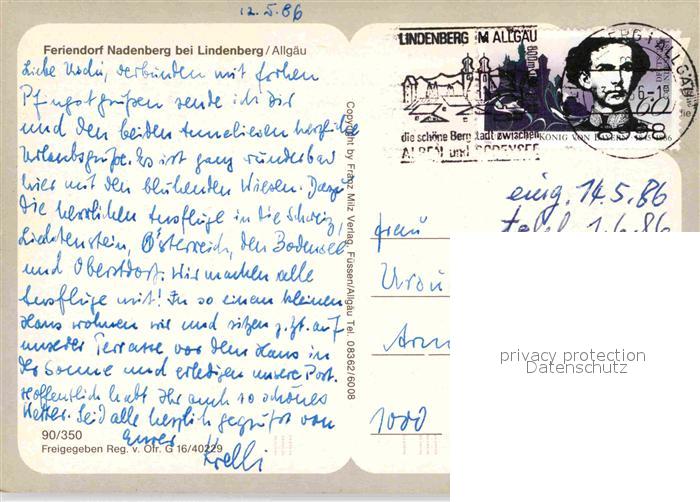 12.5.86
Feriendorf Nadenberg bei Lindenberg/Allgäu
Liebe Uschi, verbunden mit frohen
Pfingstgrüßen sende ich Dir
und den beiden Anneliesen herzliche
Urlaubsgrüße. Es ist ganz wunderbar
hier mit den blühenden Wiesen. Dazu
die herrlichen Ausflüge in die Schweiz,
Liechtenstein, Österreich, den Bodensee
und Oberstdorf. Wir machen alle
Ausflüge mit! In so einem kleinen
Haus wohnen wir und sitzen z.Zt. auf
unserer Terrasse vor dem Haus in
der Sonne und erledigen unsere Post.
Hoffentlich habt Ihr auch so schönes
Wetter. Seid alle herzlich gegrüßt von
Eurer
90/350
Freigegeben Reg. v. Ofr. G 16/40229
Copyright by Franz Milz Verlag, Füssen/Allgäu Tel. 08362/6008
LINDENBERG IM ALLGÄU
800m
die schöne Bergstadt zwischen
ALPEN und BODENSEE
KÖNIG VON BAYERN 1845-1886
60
8998
eing. 14.5.86
1.6.86
Frau
1000
privacy protection
Datenschutz